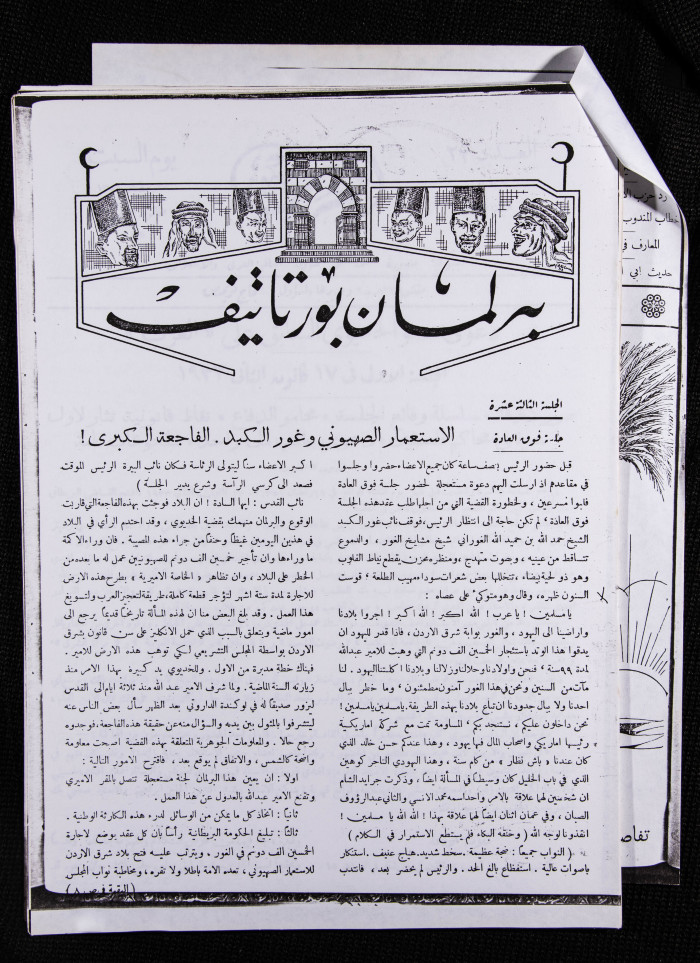 برلمان بورتاتيف
الجلسة الثالثة عشرة
جلسة فوق العادة
الاستعمار الصهيوني وغور الكبد . الفاجعة الكبرى !
قبل حضور الرئيس بنصف ساعة كان جميع الاعضاء حضروا وجلسوا
في مقاعدهم اذ ارسلت اليهم دعوة مستعجلة لحضور جلسة فوق العادة
فلبوا مسرعين ، ولخطورة القضية التي من اجلها طلب عقد هذه الجلسة
فوق العادة ، لم تكن حاجة الى انتظار الرئيس ، فوقف نائب غور الكبد
الشيخ حمد الله بن حميد الله الغوراني شيخ مشايخ الغور ، والدموع
تتساقط من عينيه ، وجبوت متهدج ، ومنظره محزن يقطع نياط القلوب
وهو ذو لحية بيضاء ، تتخللها بعض شعرات سوداء مهيب الطلعة ، قوست
السنون ظهره ، وقال وهو متوكىء على عصاه :
يا مسلمين ! يا عرب ! الله اكبر ! الله اكبر ! اجروا بلادنا
واراضينا الى اليهود ، والغور بوابة شرق الاردن ، فاذا قدر لليهود ان
يدقوا هذا الوتد باستئجار الخمسين الف دونم التي وهبت للامير عبدالله
لمدة ٩٩ سنة ، فنحن واولادنا وحلالنا وزلالنا وبلادنا اكلتنا اليهود . لنا
مآت من السنين ونحن في هذا الغور آمنون مطمئنون ، وما خطر ببال
احدنا ولا ببال جدودنا ان تباع بلادنا بهذه الطريقة . يا مسلمين يا مسلمين !
نحن داخلون عليكم ، نستنجد بكم ! المساومة تمت مع شركة اماريكية
رئيسها اماريكي واصحاب المال فيها يهود ، وهذا عندكم حسن خالد الذي
كان عندنا « باش نظار » من كام سنة ، وهذا اليهودي التاجر كوهين
الذي في باب الخليل كان وسيطاً في المسألة ايضاً ، وذكرت جرايد الشام
ان شخصين لهما علاقة بالامر واحد اسمه محمد الانسي والثاني عبدالرؤوف
الصبان ، وفي عمان اثنان ايضاً لهما علاقة بهذا ! الله الله يا مسلمين !
انقذونا لوجه الله ( وخنقه البكاء فلم يستطع الاستمرار في الكلام )
( النواب جميعاً : ضجة عظيمة . سخط شديد . هياج عنيف . استنكار
باصوات عالية . استفظاع بالغ الحد . والرئيس لم يحضر بعد ، فانتدب
اكبر الاعضاء سناً ليتولى الرئاسة فكان نائب البيرة الرئيس الموقت
فصعد الى كرسي الرآسة وشرع يدير الجلسة )
نائب القدس : ايها السادة ! ان البلاد فوجئت بهذه الفاجعة التي قاربت
الوقوع والبرلمان منهمك بقضية الخديوي ، وقد احتدم الرأي في البلاد
في هذين اليومين غيظاً وحنقاً من جراء هذه المصيبة . فان وراء الاكمة
ما وراءها وان تأجير خمسين الف دونم للصهيونيين عمل له ما بعده من
الخطر على البلاد ، وان تظاهر « الخاصة الاميرية » بطرح هذه الارض
للاجارة لمدة ستة اشهر لتؤجر قطعة كاملة ، طريقة لتعجيز العرب ولتسويغ
هذا العمل . وقد بلغ البعض منا ان لهذه المسألة تاريخاً قديماً يرجع الى
امور ماضية ويتعلق بالسبب الذي حمل الانكليز على سن قانون بشرق
الاردن بواسطة المجلس التشريعي لكي توهب هذه الارض للامير .
فهناك خطة مدبرة من الاول . وللخديوي يد كبيرة بهذا الامر منذ
زيارته السنة الماضية . ولما شرف الامير عبد الله منذ ثلاثة ايام الى القدس
ليزور صديقاً له في لوكندة الداروتي بعد الظهر سأل بعض الناس عنه
ليتشرفوا بالمثول بين يديه والسؤال منه عن حقيقة هذه الفاجعة ، فوجدوه
رجع حالا . والمعلومات الجوهرية المتعلقة بهذه القضية اصبحت معلومة
واضحة كالشمس ، والاتفاق لم يوقع بعد ، فاقترح الامور التالية :
اولا : ان يعين هذا البرلمان لجنة مستعجلة تتصل بالمقر الاميري
وتقنع الامير عبدالله بالعدول عن هذا العمل .
ثانياً : اتخاذ كل ما يمكن من الوسائل لدرء هذه الكارثة الوطنية .
ثالثاً : تبليغ الحكومة البريطانية رأساً بان كل عقد يوضع لاجارة
الخمسين الف دونم في الغور . ويترتب عليه فتح بلاد شرق الاردن
للاستعمار الصهيوني ، تعده الامة باطلا ولا تقره ، ومخاطبة نواب المجلس
( البقية في ص ٨ )
رد حزب الا
خطاب المندوب
المعارف في
حديث ابي
تفاص